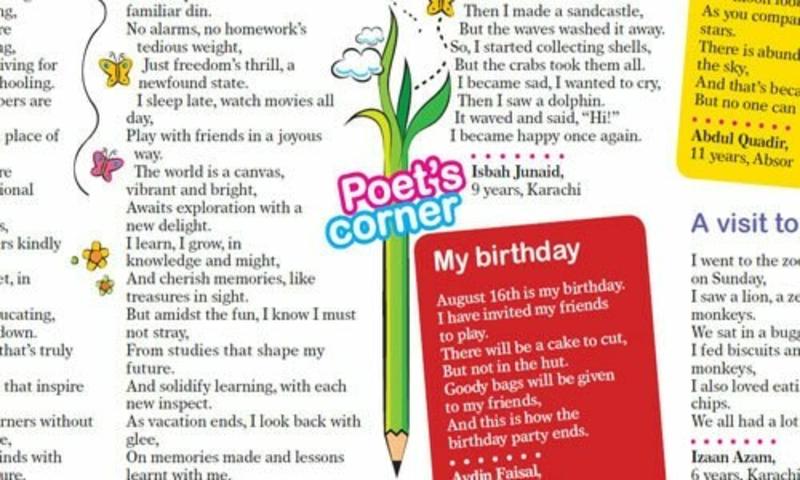 ng,
re
ng,
iving for
hooling.
ers are
place of
re
ional
s,
rs kindly
et, in
ucating,
down.
that's truly
that inspire
rners without
e,
inds with
ure.
familiar din.
No alarms, no homework's
tedious weight,
Just freedom's thrill, a
newfound state.
I sleep late, watch movies all
day,
Play with friends in a joyous
way.
The world is a canvas,
vibrant and bright,
Awaits exploration with a
new delight.
I learn, I grow, in
knowledge and might,
And cherish memories, like
treasures in sight.
But amidst the fun, I know I must
not stray,
From studies that shape my
future.
And solidify learning, with each
new inspect.
As vacation ends, I look back with
glee,
On memories made and lessons
learnt with me.
Poet's
corner
Then I made a sandcastle,
But the waves washed it away.
So, I started collecting shells,
But the crabs took them all.
I became sad, I wanted to cry,
Then I saw a dolphin.
It waved and said, "Hi!"
I became happy once again.
Isbah Junaid,
9 years, Karachi
My birthday
August 16th is my birthday.
I have invited my friends
to play.
There will be a cake to cut,
But not in the hut.
Goody bags will be given
to my friends,
And this is how the
birthday party ends.
Aydin Faisal,
As you compa
stars.
There is abund
the sky,
And that's beca
But no one can
Abdul Quadir,
11 years, Absor
A visit to
I went to the zoo
on Sunday,
I saw a lion, a ze
monkeys.
We sat in a bugg
I fed biscuits an
monkeys,
I also loved eati
chips.
We all had a lot
Izaan Azam,
6 years, Karachi